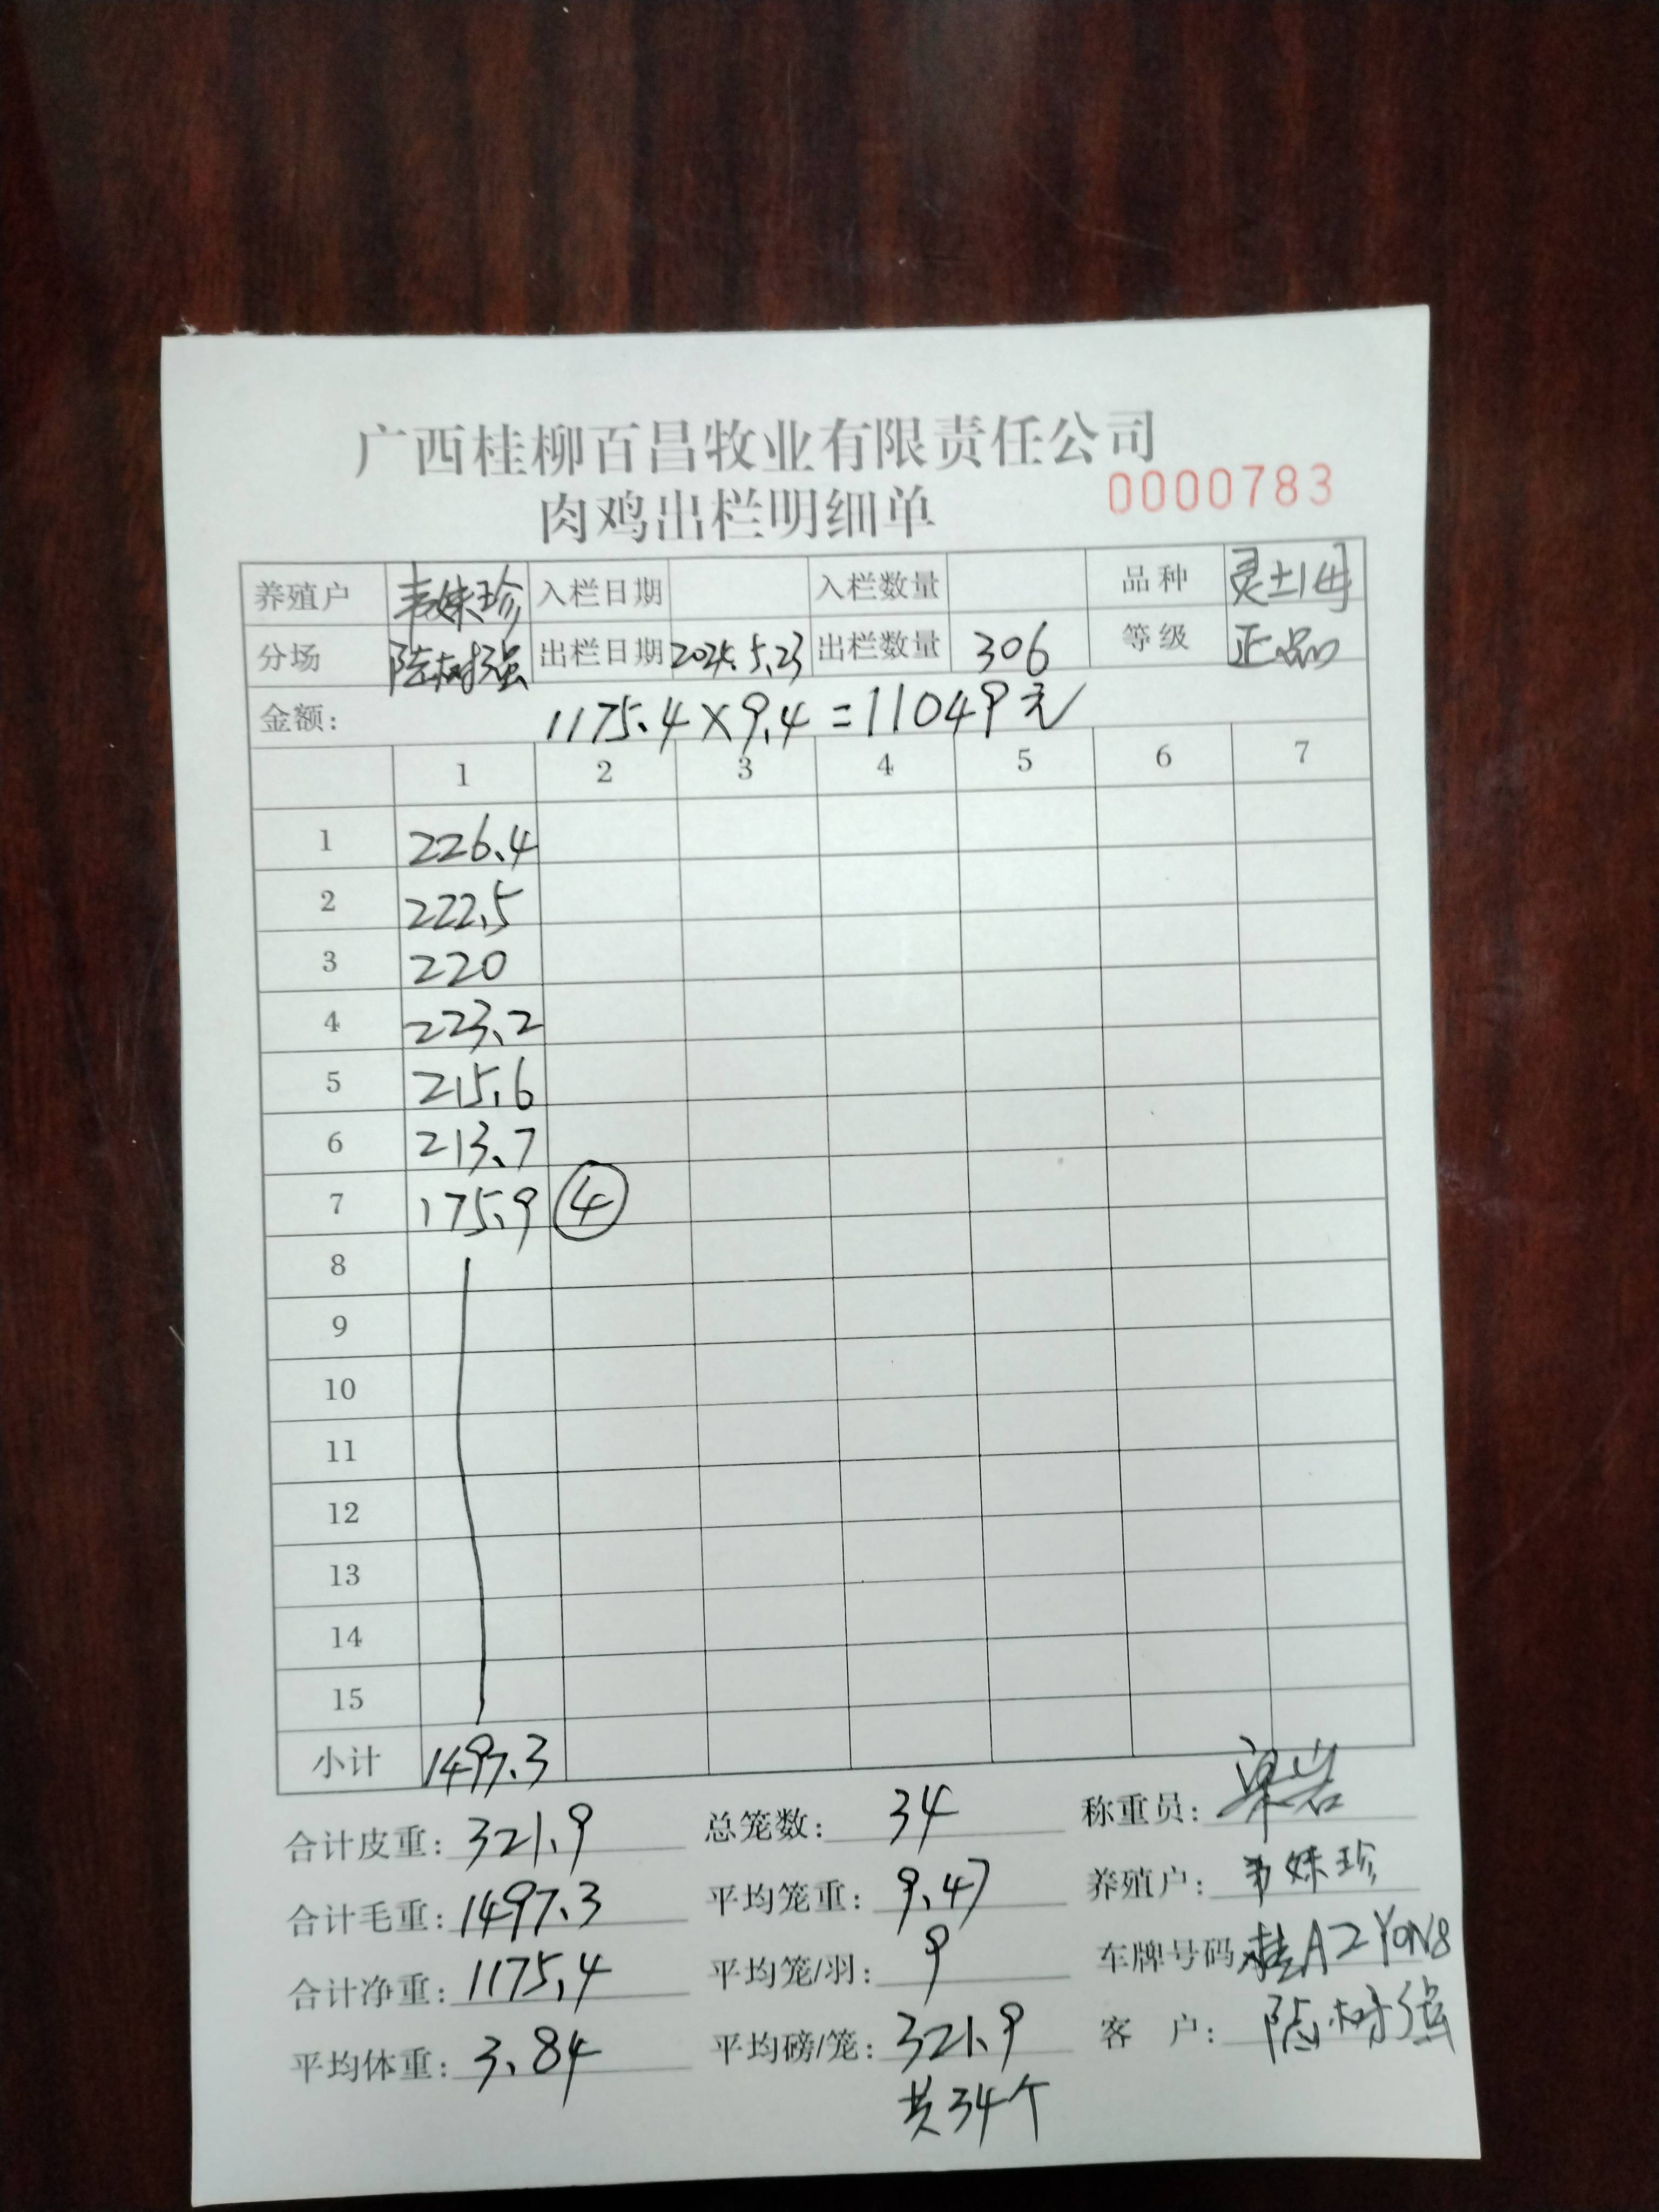 广西桂柳百昌牧业有限责任公司
肉鸡出栏明细单 0000783
养殖户 韦妹珍 入栏日期 入栏数量 品种 灵土1母
分场 陈树强 出栏日期 2024.5.23 出栏数量 306 等级 正品
金额: 1175.4×9.4=11049元
1 2 3 4 5 6 7
1 226.4
2 222.5
3 220
4 223.2
5 215.6
6 213.7
7 175.9 ④
8
9
10
11
12
13
14
15
小计 1497.3
合计皮重: 321.9 总笼数: 34 称重员: 梁岩
合计毛重: 1497.3 平均笼重: 9.47 养殖户: 韦妹珍
合计净重: 1175.4 平均笼/羽: 9 车牌号码 桂A2Y0N8
平均体重: 3.84 平均磅/笼: 321.9 客户: 陈树强
共34个